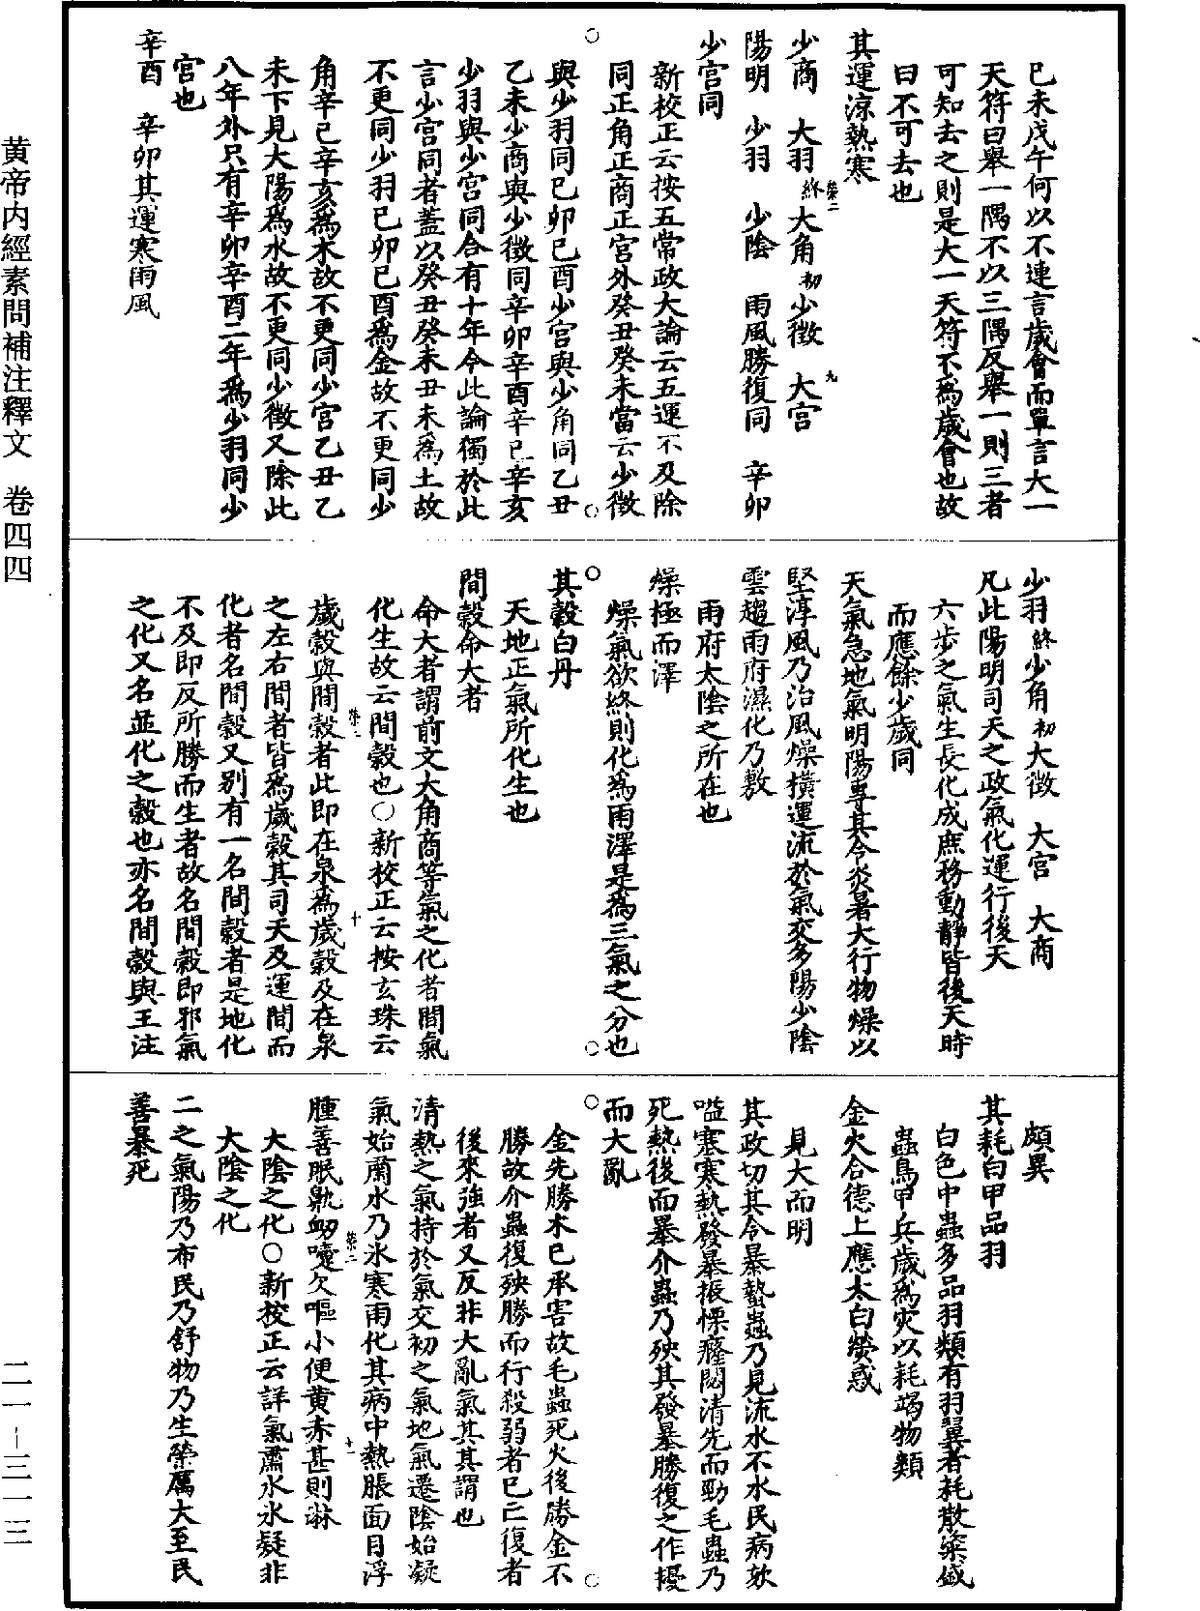 黄帝内經素問補注釋文　卷四四
二一－三一三
巳未戊午何以不連言歲會而單言大一
天符曰舉一隅不以三隅反舉一則三者
可知去之則是大一天符不爲歲會也故
曰不可去也
其運涼熱寒
少商　大羽終　大角初　少徵　大宮
陽明　少羽　少陰　雨風勝復同　辛卯
少宮同
新校正云按五常政大論云五運不及除
同正角正商正宮外癸丑癸未當云少徵
與少羽同巳卯巳酉少宮與少角同乙丑
乙未少商與少徵同辛卯辛酉辛巳辛亥
少羽與少宮同合有十年今此論獨於此
言少宮同者蓋以癸丑癸未丑未爲土故
不更同少羽巳卯巳酉爲金故不更同少
角辛巳辛亥爲木故不更同少宮乙丑乙
未下見大陽爲水故不更同少徵又除此
八年外只有辛卯辛酉二年爲少羽同少
宮也
辛酉　辛卯其運寒雨風
少羽終少角初大徵　大宮　大商
凡此陽明司天之政氣化運行後天
六步之氣生長化成庶務動靜皆後天時
而應餘少歲同
天氣急地氣明陽專其令炎暑大行物燥以
堅淳風乃治風燥橫運流於氣交多陽少陰
雲趨雨府濕化乃敷
雨府太陰之所在也
燥極而澤
燥氣欲終則化爲雨澤是爲三氣之分也
其穀白丹
天地正氣所化生也
間穀命大者
命大者謂前文大角商等氣之化者間氣
化生故云間穀也○新校正云按玄珠云
歲穀與間穀者此即在泉爲歲穀及在泉
之左右間者皆爲歲穀其司天及運間而
化者名間穀又別有一名間穀者是地化
不及即反所勝而生者故名間穀即邪氣
之化又名並化之穀也亦名間穀與王注
頗異
其耗白甲品羽
白色甲蟲多品羽類有羽翼者耗散粢盛
蟲鳥甲兵歲爲灾以耗竭物類
金火合德上應太白熒惑
見大而明
其政切其令暴蟄蟲乃見流水不冰民病欬
嗌塞寒熱發暴振慄癃閟清先而勁毛蟲乃
死熱後而暴介蟲乃殃其發暴勝復之作擾
而大亂
金先勝木巳承害故毛蟲死火後勝金不
勝故介蟲復殃勝而行殺弱者巳亡復者
後來強者又反非大亂氣其其謂也
清熱之氣持於氣交初之氣地氣遷陰始凝
氣始肅水乃冰寒雨化其病中熱脹面目浮
腫善眠鼽衄嚏欠嘔小便黄赤甚則淋
大陰之化○新校正云詳氣肅水冰疑非
大陰之化
二之氣陽乃布民乃舒物乃生榮厲大至民
善暴死